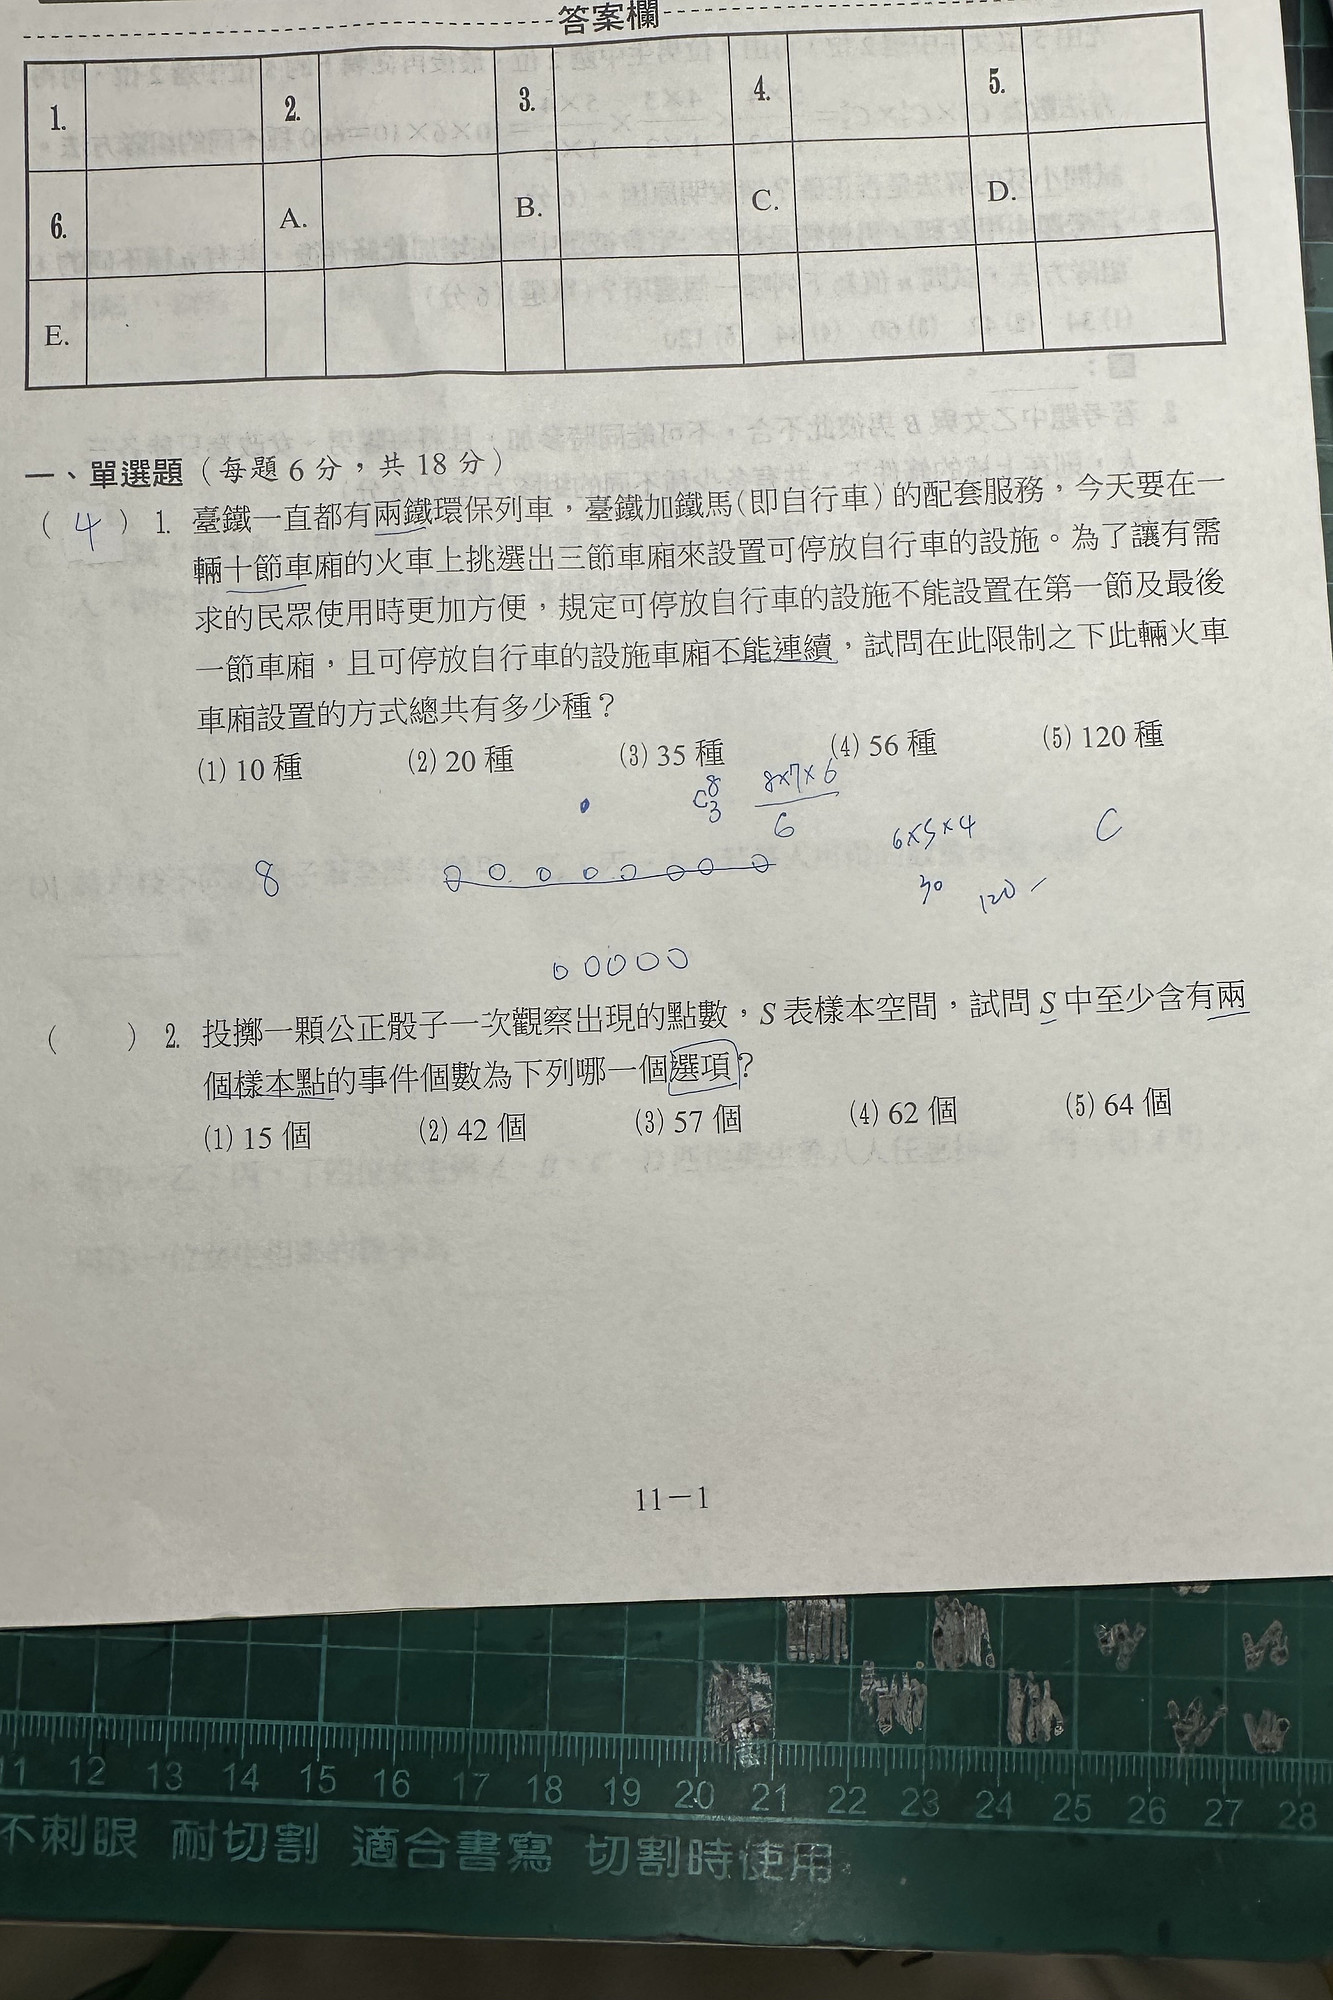 答案欄
1. 2. 3. 4. 5.
6. A. B. C. D.
E.
一、單選題（每題 6 分，共 18 分）
( 4 ) 1. 臺鐵一直都有兩鐵環保列車，臺鐵加鐵馬(即自行車)的配套服務，今天要在一
輛十節車廂的火車上挑選出三節車廂來設置可停放自行車的設施。為了讓有需
求的民眾使用時更加方便，規定可停放自行車的設施不能設置在第一節及最後
一節車廂，且可停放自行車的設施車廂不能連續，試問在此限制之下此輛火車
車廂設置的方式總共有多少種？
(1) 10 種 (2) 20 種 (3) 35 種 (4) 56 種 (5) 120 種
C⁸₃ 8×7×6
6
6×5×4 C
8
30 120
( ) 2. 投擲一顆公正骰子一次觀察出現的點數，S 表樣本空間，試問 S 中至少含有兩
個樣本點的事件個數為下列哪一個選項？
(1) 15 個 (2) 42 個 (3) 57 個 (4) 62 個 (5) 64 個
11－1
11 12 13 14 15 16 17 18 19 20 21 22 23 24 25 26 27 28
不刺眼 耐切割 適合書寫 切割時使用